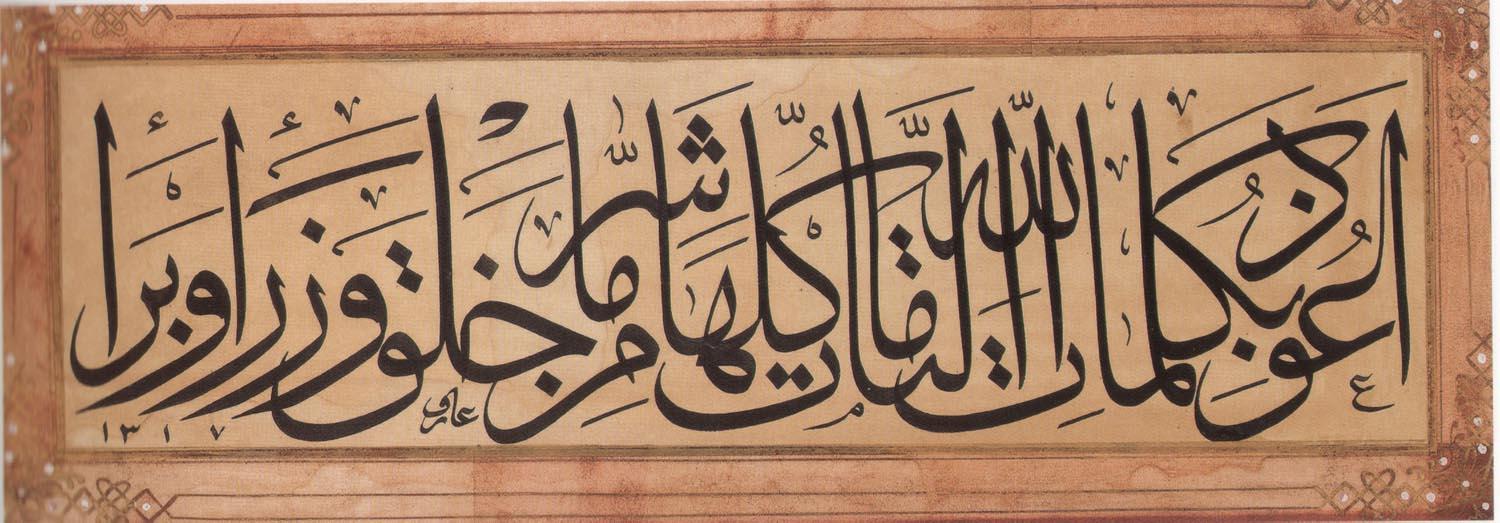 اعوذ بكلمات الله التامات كلها من شر ما خلق وذرا وبرا
عارف
١٣١٧